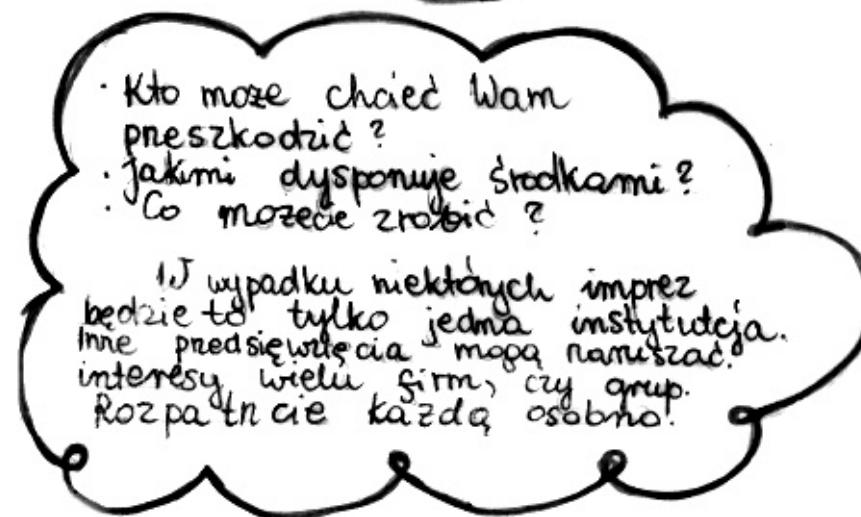 · Kto może chcieć Wam
przeszkodzić?
· Jakimi dysponuje środkami?
· Co możecie zrobić?
W wypadku niektórych imprez
będzie to tylko jedna instytutcja.
Inne przedsięwzięcia mogą naruszać
interesy wielu firm, czy grup.
Rozpatrzcie każdą osobno.